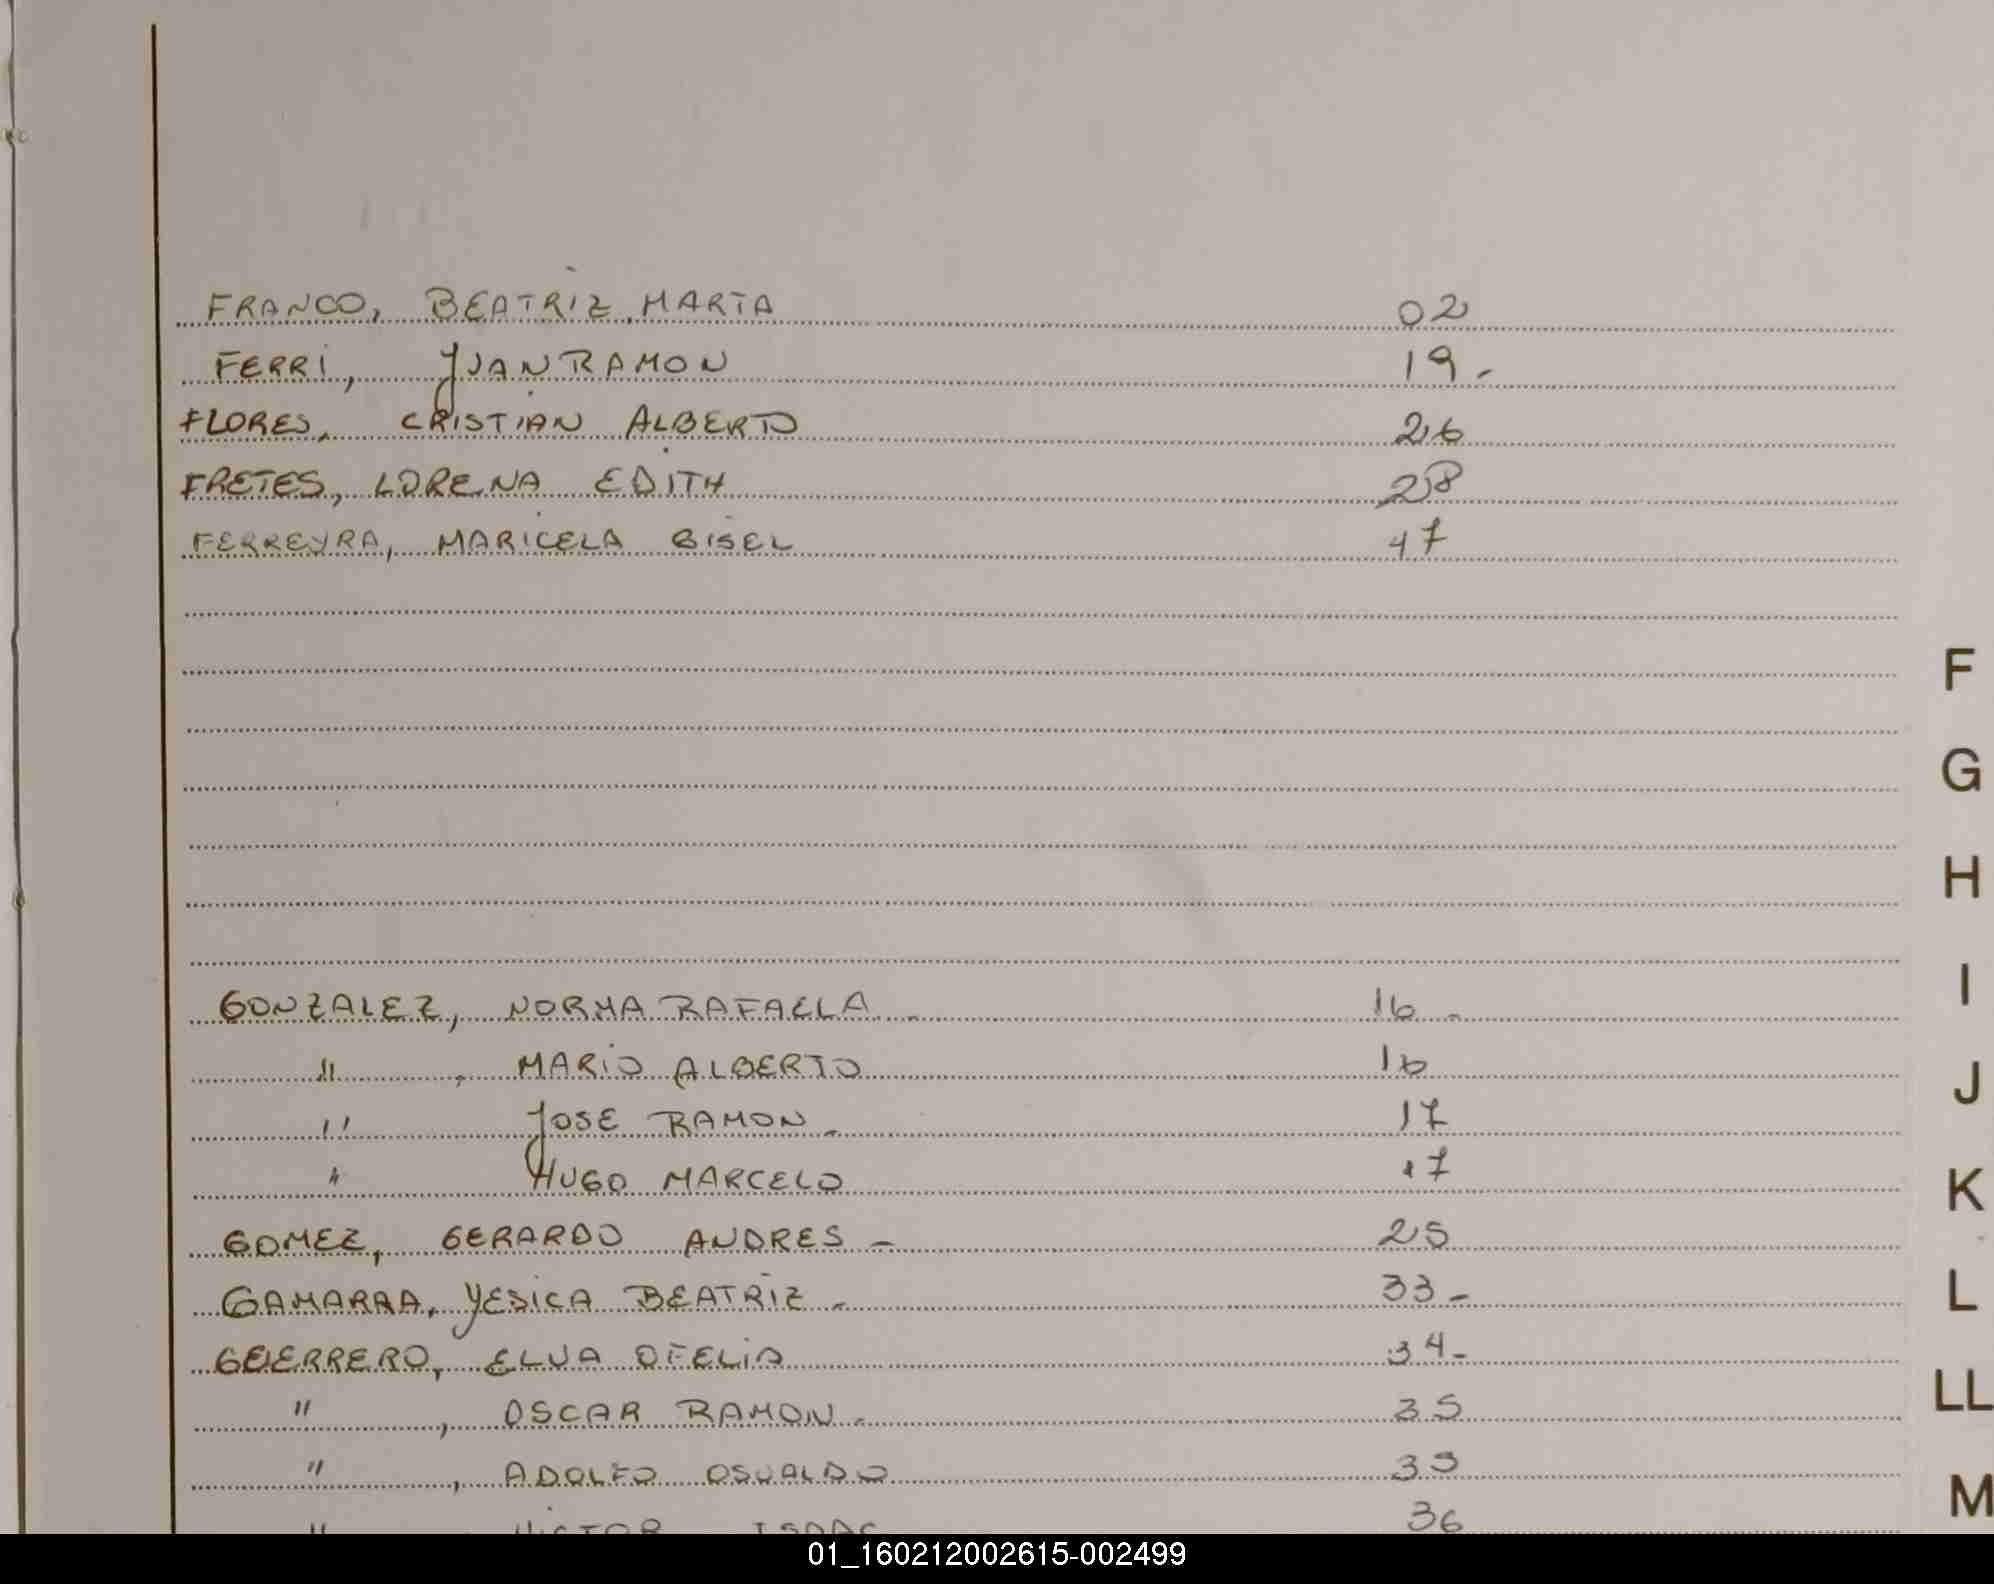 FRANCO, BEATRIZ MARTA 02
FERRI, JUAN RAMON 19-
FLORES, CRISTIAN ALBERTO 26
FRETES, LORENA EDITH 28
FERREYRA, MARICELA GISEL 47
F
G
H
I
GONZALEZ, NORMA RAFAELA - 16 -
" , MARIO ALBERTO 16
J
" JOSE RAMON - 17
" HUGO MARCELO 17
K
GOMEZ, GERARDO ANDRES - 25
GAMARRA, YESICA BEATRIZ - 33 -
L
GUERRERO, ELVA OFELIA 34-
" , OSCAR RAMON - 35
LL
" , ADOLFO OSVALDO 35
M
" VICTOR ISAAC 36
01_160212002615-002499